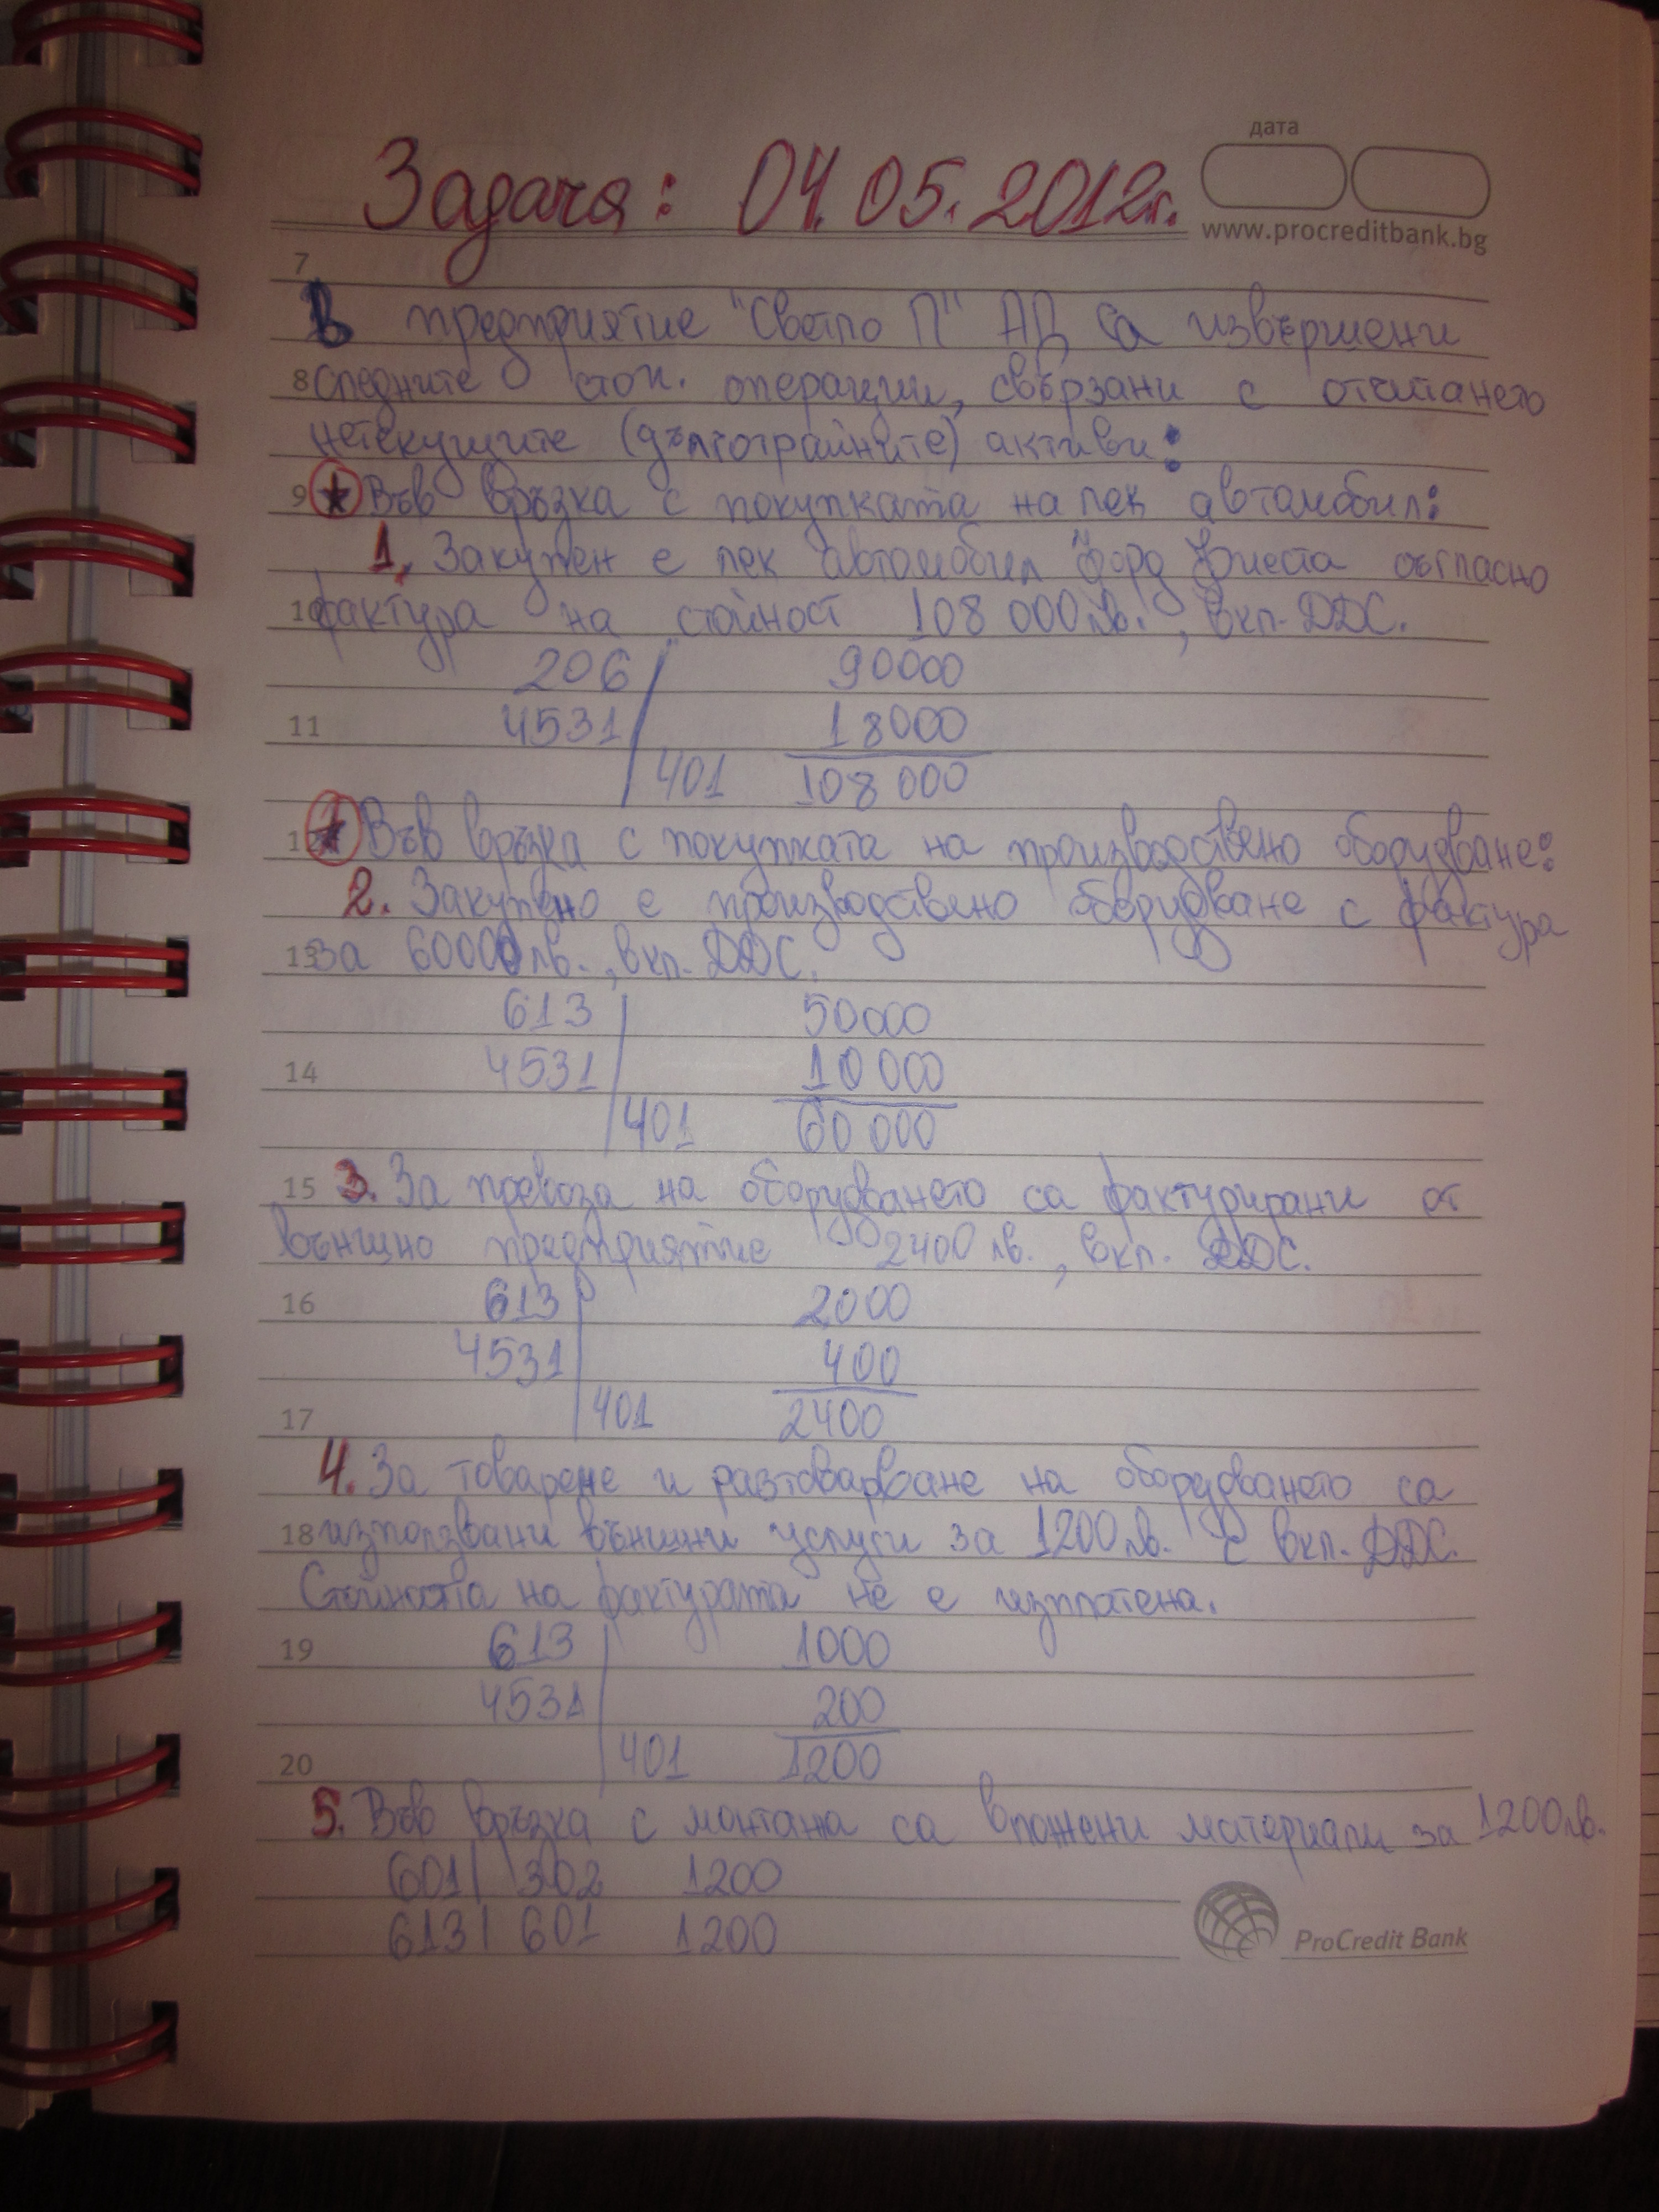 дата
Задача: 04.05.2012г.
www.procreditbank.bg
7
В предприятие "Светло П" АД са извършени
8 следните стоп. операции, свързани с отчитането
нетекущите (дълготрайните) активи:
9 Във връзка с покупката на лек автомобил:
1. Закупен е лек автомобил "Форд Фиеста съгласно
10 фактура на стойност 108 000 лв., вкл. ДДС.
206 90000
11 4531 18000
401 108 000
12 Във връзка с покупката на производствено оборудване:
2. Закупено е производствено оборудване с фактура
13 за 60000 лв., вкл. ДДС.
613 50000
14 4531 10 000
401 60 000
15 3. За превоза на оборудването са фактурирани от
външно предприятие 2400 лв., вкл. ДДС.
16 613 2000
4531 400
17 401 2400
4. За товарене и разтоварване на оборудването са
18 използвани външни услуги за 1200 лв. с вкл. ДДС.
Стойността на фактурата не е изплатена.
19 613 1000
4531 200
20 401 1200
5. Във връзка с монтажа са вложени материали за 1200 лв.
601 | 302 1200
613 | 601 1200
ProCredit Bank